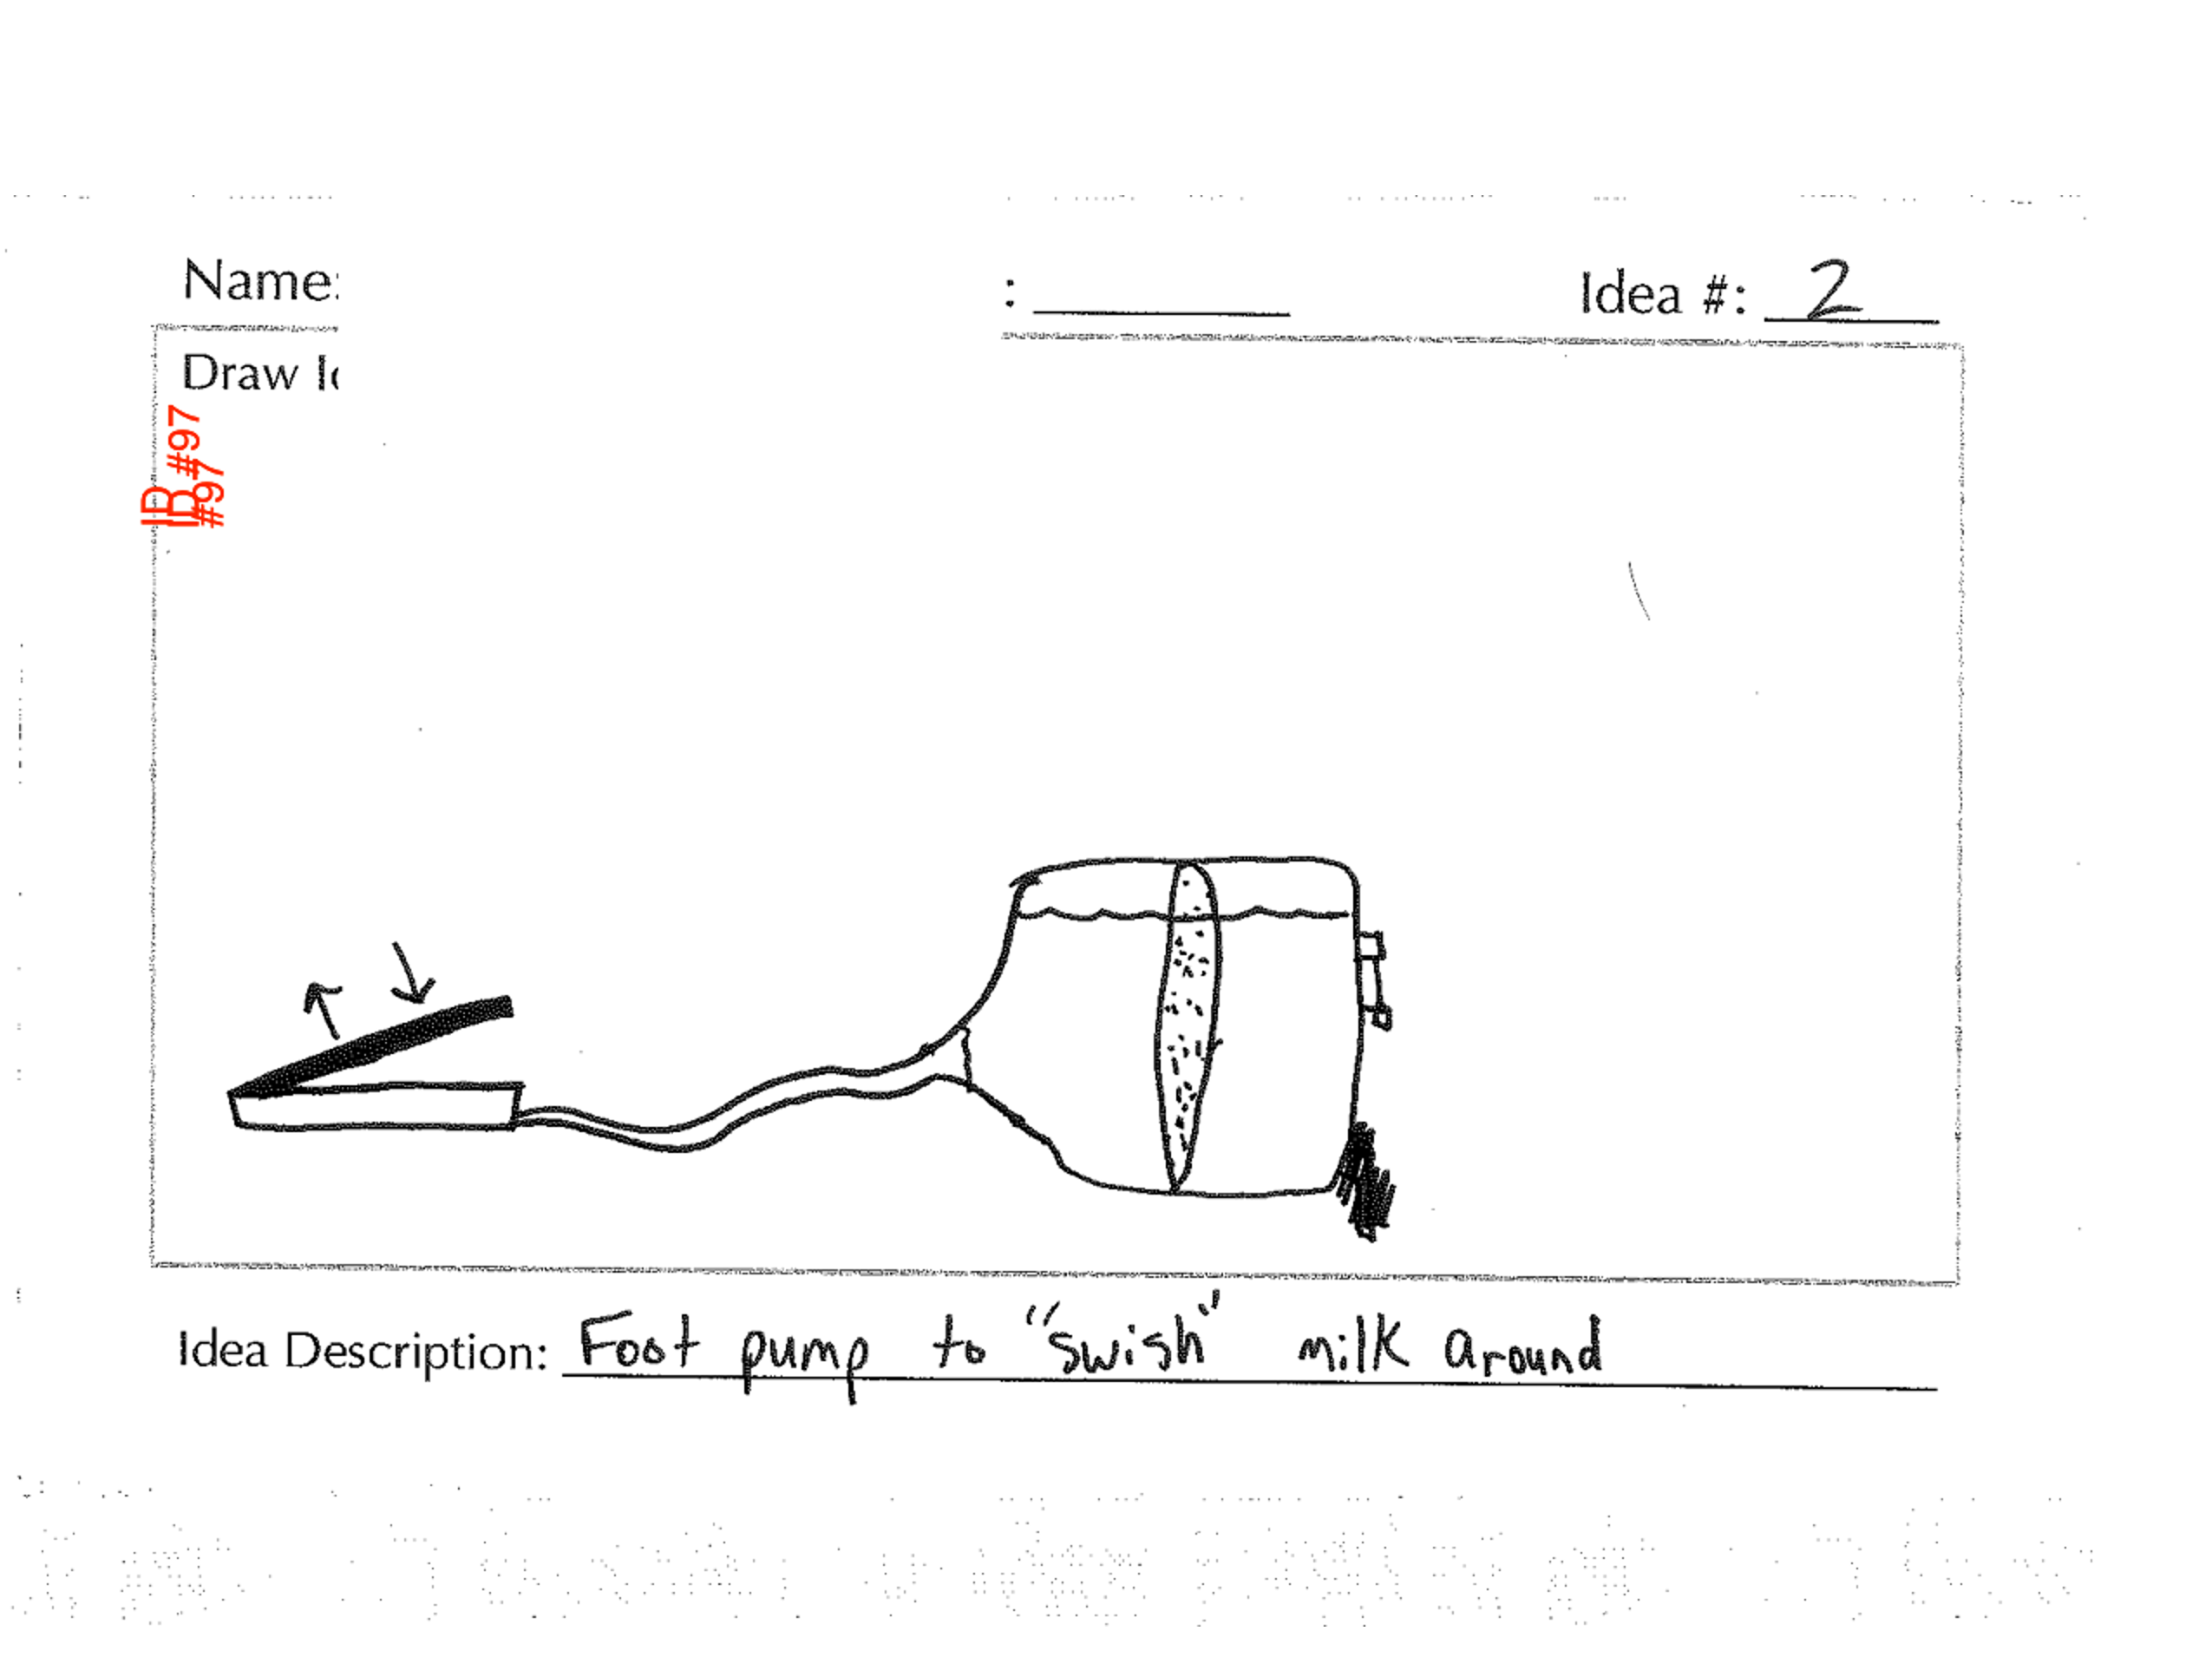 Name:
: Idea #: 2
Draw I
ID #97
ID #97
Idea Description: Foot pump to "swish" milk around